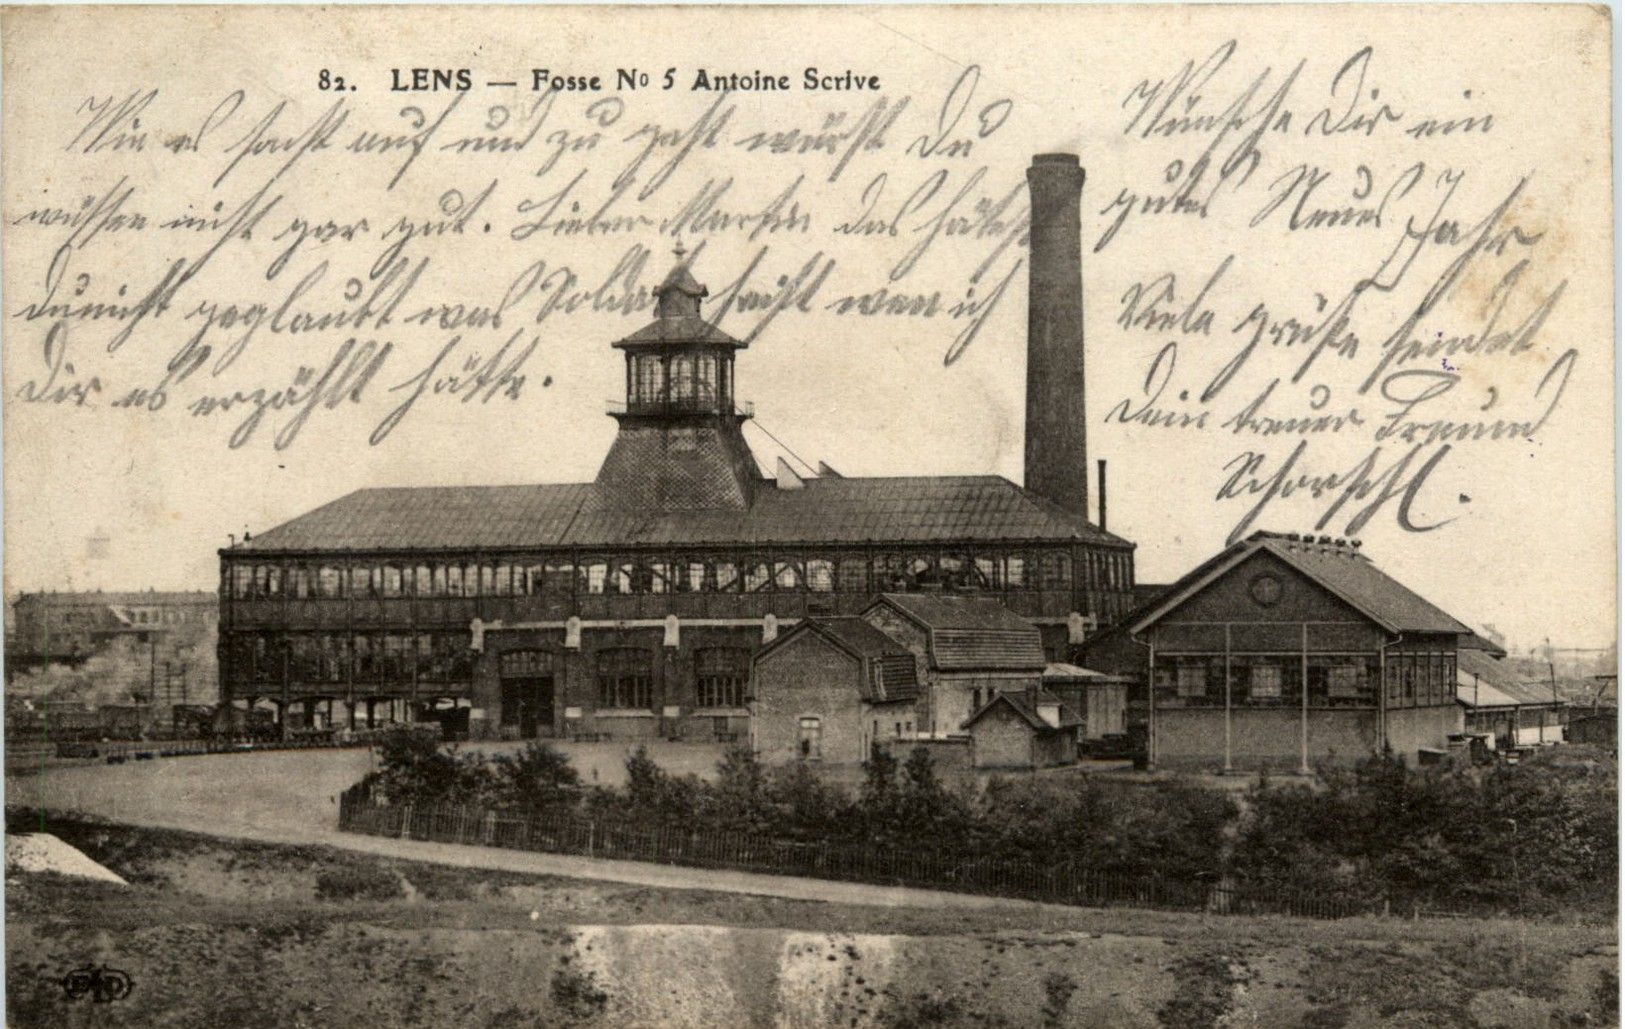 82. LENS — Fosse No 5 Antoine Scrive
Wie es sonst auf und zu geht würst Du
wissen nicht gar gut. Lieber Martin das hätst
du nicht geglaubt was Soldat heißt wen ich
Dir es erzählt hätte.
Wünsche Dir ein
gutes Neues Jahr
Viele grüße sendet
Dein treuer Freund
Schorschl.
ELD